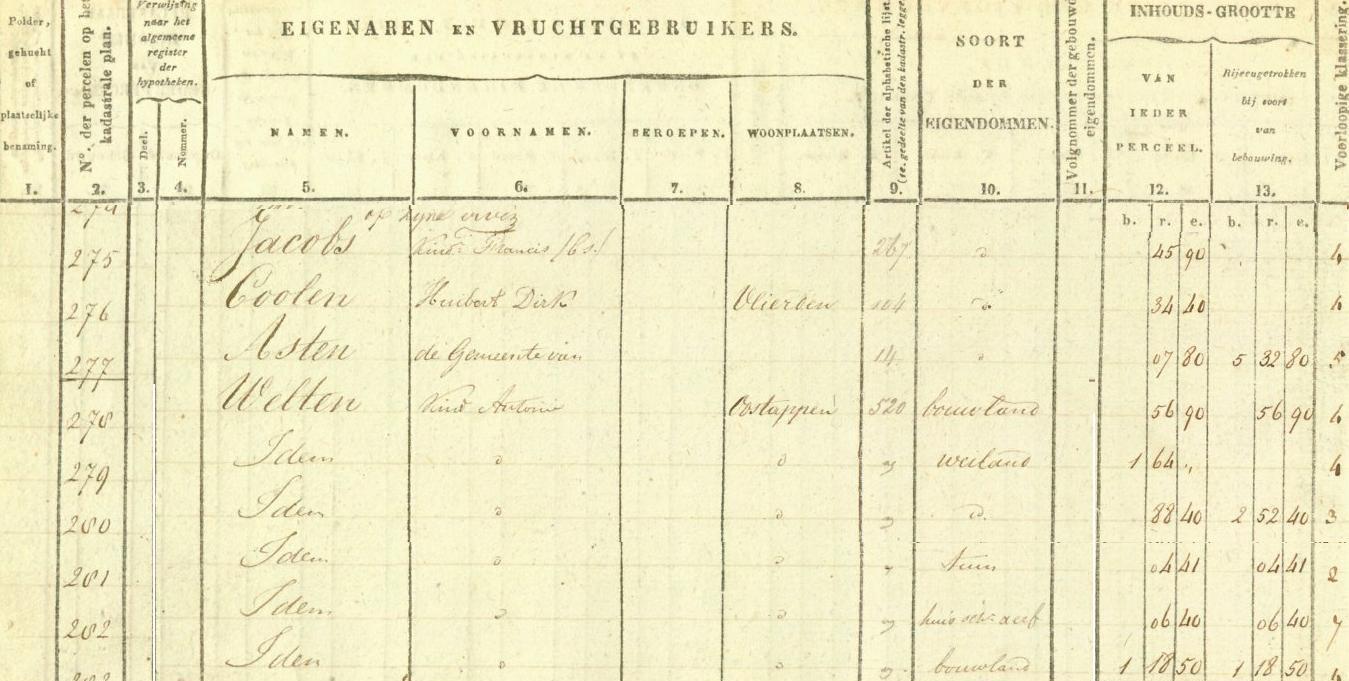 EIGENAREN EN VRUCHTGEBRUIKERS.
INHOUDS-GROOTTE
Polder,
gehucht
of
plaatselijke
benaming.
N°. der percelen op het
kadastrale plan.
Verwijzing
naar het
algemeene
register
der
hypotheken.
Deel.
Nommer.
NAMEN.
VOORNAMEN.
BEROEPEN.
WOONPLAATSEN.
Artikel der alphabetische lijst.
(1e. gedeelte van den kadastr. legger
SOORT
DER
EIGENDOMMEN.
Volgnommer der gebouwde
eigendommen.
VAN
IEDER
PERCEEL.
Bijeengetrokken
bij soort
van
bebouwing.
Voorloopige klassering.
1. 2. 3. 4. 5. 6. 7. 8. 9. 10. 11. 12. 13.
b. r. e. b. r. e.
274 op zyne
275 Jacobs Kind. Francis 267 " 45 90 4
276 Coolen Huibert Dirk Vlierden 104 " 34 40 4
277 Asten de Gemeente van 14 " 07 80 5 32 80 5
278 Welten Kind Antonie Oostappen 520 bouwland 56 90 56 90 4
279 Idem " " " weiland 1 64 " 4
280 Idem " " " d. 88 40 2 52 40 3
281 Idem " " " tuin 04 41 04 41 2
282 Idem " " " huis sch: erf 06 40 06 40 7
Idem " " " bouwland 1 18 50 1 18 50